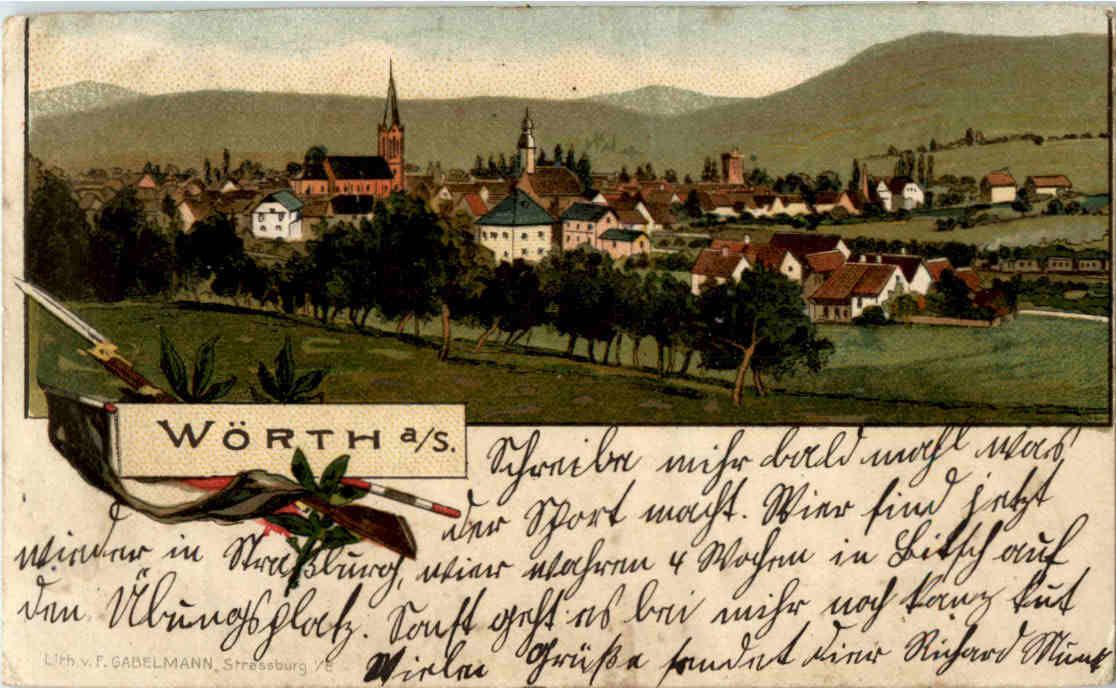 WÖRTH a/S.
Schreibe mihr bald mahl was
der Sport macht. Wier sind jetzt
wieder in Straßburg, wier wahren 4 Wochen in Bitsch auf
den Übungsplatz. Sonst geht es bei mihr noch kanz kut
Vielei Grüße sendet dier Richard
Lith. v. F. GABELMANN, Strassburg i/E